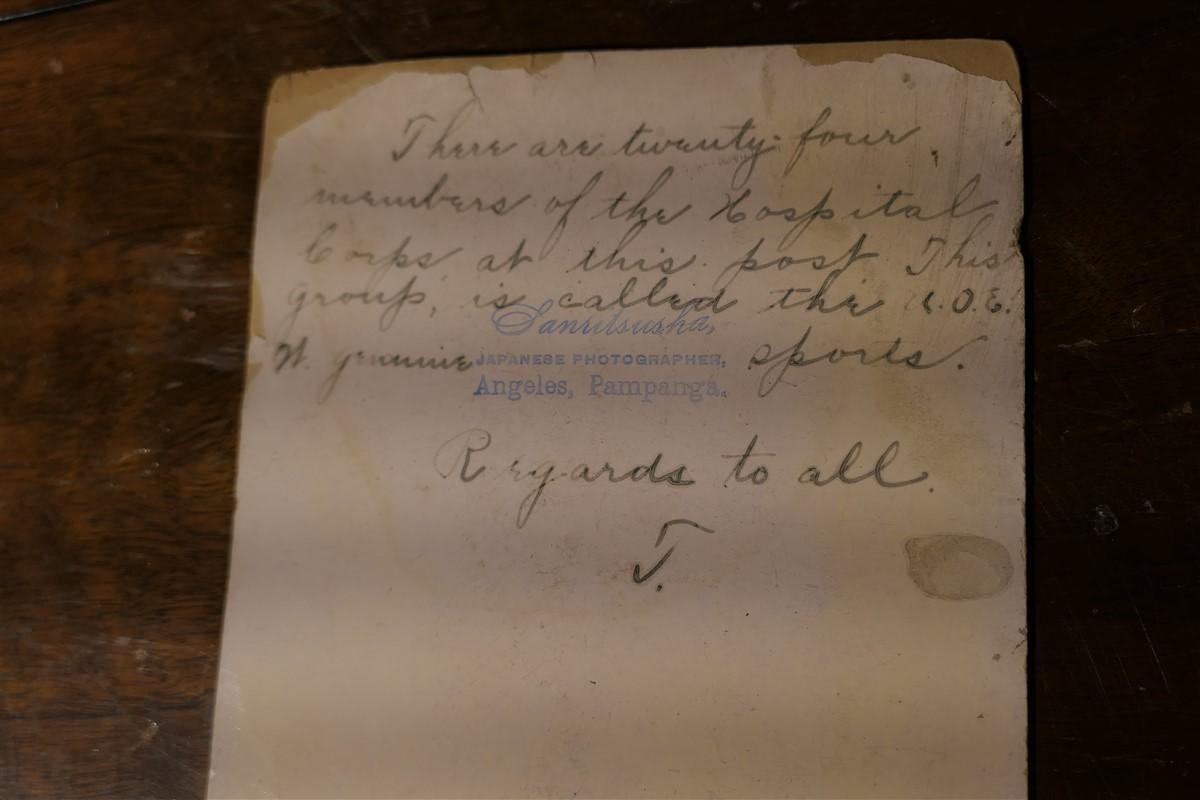 There are twenty-four
members of the Hospital
Corps at this post This
group, is called the
Sanritsusha,
W. genuine sports.
JAPANESE PHOTOGRAPHER,
Angeles, Pampanga.
Regards to all.
J.